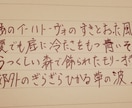 あのイーハトーヴォのすきとおった風
夏でも底に冷たさをもつ青いそ
うつくしい森で飾られたモリーオ
郊外のぎらぎらひかる草の波。